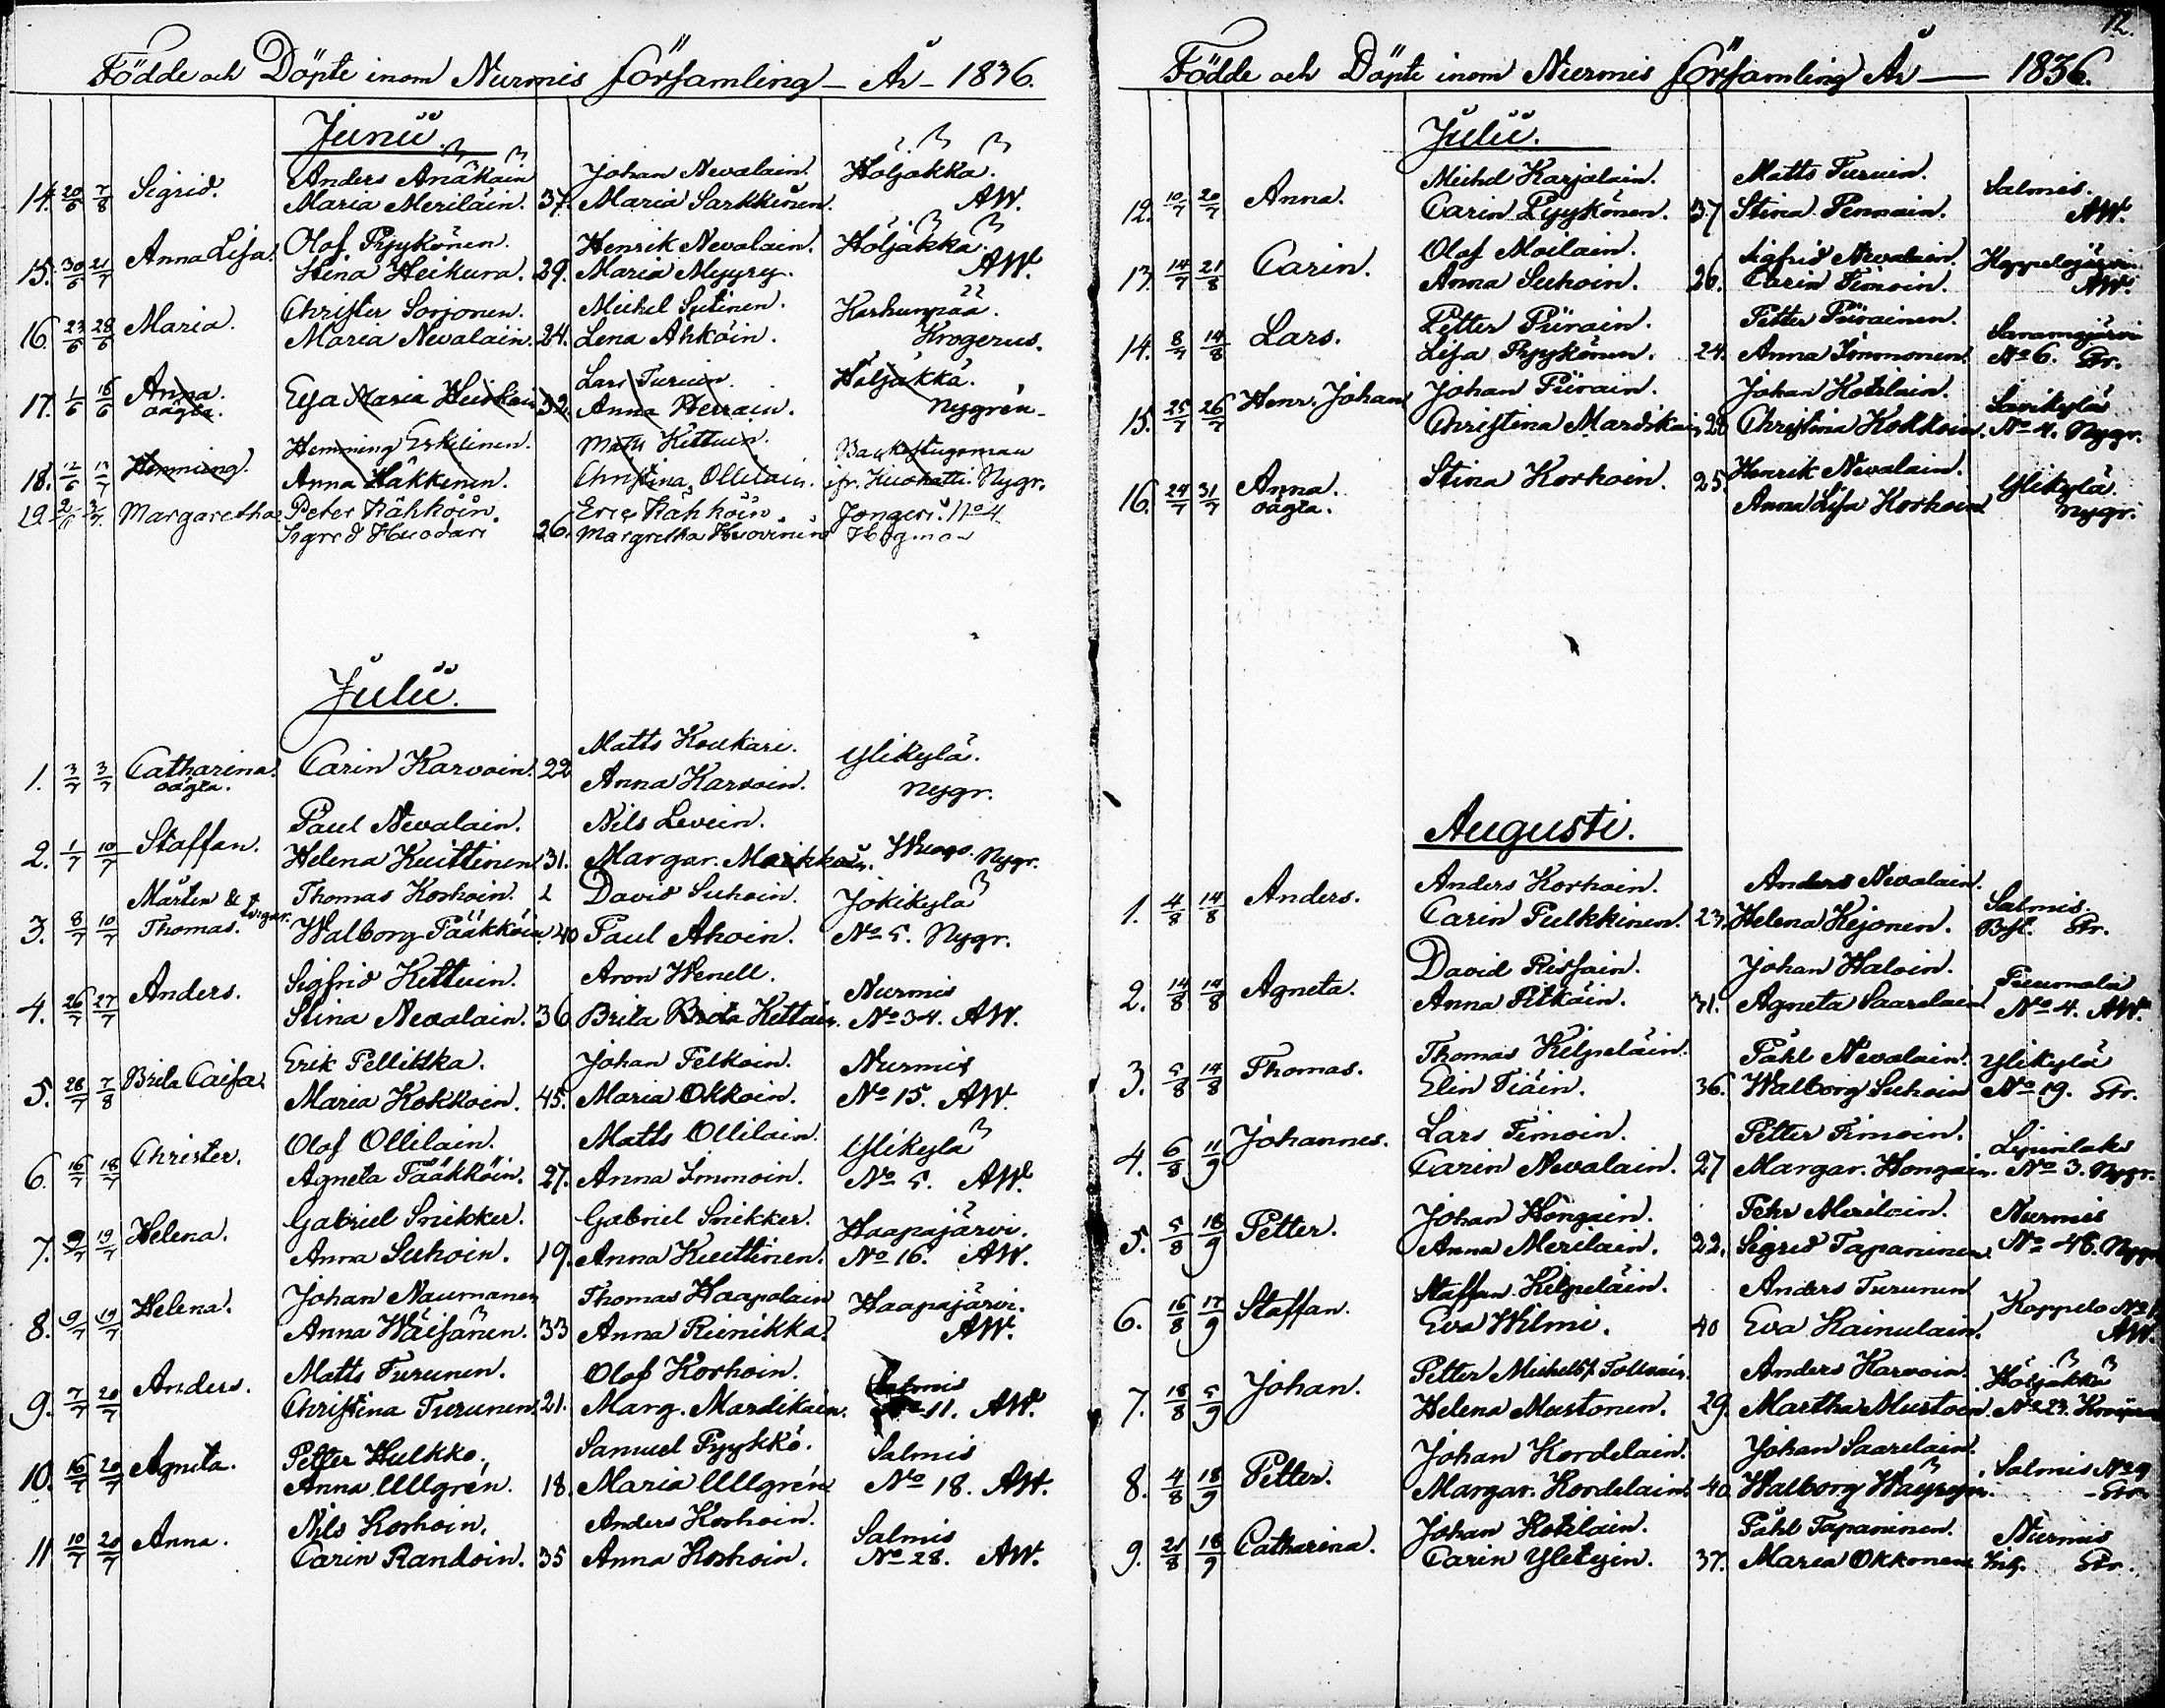 Födde och Döpte inom Nurmis församling - År - 1836.
Junii.
14. 20/6 7/8 Sigrid. Anders Anäkain Johan Nevalain. Höljäkkä.
Maria Meriläin. 37. Maria Sarkkinen. AW.
15. 30/6 21/7 Anna Lisa. Olof Pyykönen. Henrik Nevalain. Höljäkkä.
Stina Heikura. 29. Maria Myyry. AW.
16. 23/6 28/6 Maria. Christer Sorjonen. Michel Sutinen. Karhunpää.
Maria Nevalain. 24. Lena Ahkoin. Krogerus.
17. 1/6 16/6 Anna. Lars Turuin. Höljäkkä.
oägta. Eva Maria 32. Anna Nygrén
18. 12/6 13/7 Henning. Henning Eskelinen. Matts Kettuin. Backstugoman
Anna Häkkinen. Christina Ollilain. ifr. Kuohatti. Nygr.
19. 2/6 3/7 Margaretha Peter Kähköin. Eric Kähköin Jongeri. No 4.
Sigrid Huodari 26. Margretha Huovinen Högman
Julii.
1. 3/7 3/7 Catharina. Carin Karvoin. 22 Matts Koukari. Ylikylä.
oägta. Anna Karvoin. Nygr.
2. 1/7 10/7 Staffan. Paul Nevalain. Nils Levein.
Helena Kuittinen 31. Margar. Markkain. Nygr.
3. 8/7 10/7 Mårten & Thomas Korhoin. David Suhoin. Jokikylä
Thomas. tvigar. Walborg Pääkköin 40 Paul Ahoin. No 5. Nygr.
4. 26/7 27/7 Anders. Sigfrid Kettuin. Aron Wenell. Nurmis
Stina Nevalain. 36 Brita Brita Kettuin. No 34. AW.
5. 28/7 7/8 Brita Caisa. Erik Pellikka. Johan Pelkoin. Nurmis
Maria Kokkoin. 45. Maria Okkoin. No 15. AW.
6. 16/7 18/7 Christer. Olof Ollilain. Matts Ollilain. Ylikylä
Agneta Pääkköin. 27. Anna Immoin. No 5. AW.
7. 9/7 19/7 Helena. Gabriel Snikker. Gabriel Snikker. Haapajärvi.
Anna Suhoin. 19. Anna Kuittinen. No 16. AW.
8. 9/7 19/7 Helena. Johan Naumanen Thomas Haapalain Haapajärvi.
Anna Wäisänen. 33 Anna Rinikka. AW.
9. 7/7 20/7 Anders. Matts Turunen. Olof Korhoin. Salmis
Christina Turunen. 21. Marg. Mardikain. No 11. AW.
10. 16/7 20/7 Agneta. Petter Hulkko. Samuel Pyykkö. Salmis
Anna Ullgrén. 18. Maria Ullgrén No 18. AW.
11. 10/7 20/7 Anna. Nils Korhoin. Anders Korhoin. Salmis
Carin Randoin. 35 Anna Korhoin. No 28. AW.
12.
Födde och Döpte inom Nurmis församling År — 1836.
Julii.
12. 10/7 20/7 Anna. Michel Karjalain. Matts Turuin. Salmis.
Carin Pyykönen. 37 Stina Pennain. AW.
13. 14/7 21/8 Carin. Olof Moilain. Sigfrid Nevalain.
Anna Suhoin. 26. Carin Timoin. AW.
14. 8/7 14/8 Lars. Petter Piirain. Petter Piirainen. Saramojärvi
Lisa Pyykönen. 24. Anna Immonen. No 6. Str.
15. 25/7 26/7 Henr. Johan Johan Piirain. Johan Kotilain. Savikylä
Christina Mardikain 28 Christina Kokkoin. No 4. Nygr.
16. 24/7 31/7 Anna. Stina Korhoin. 25. Henrik Nevalain. Ylikylä
oägta. Anna Lisa Korhoin Nygr.
Augusti.
1. 4/8 14/8 Anders. Anders Korhoin. Anders Nevalain. Salmis.
Carin Pulkkinen. 23. Helena Kejonen. Bst. Str.
2. 14/8 14/8 Agneta. David Rissain. Johan Haloin. Puumala
Anna Pitkäin. 31. Agneta Saarelain No 4. AW.
3. 5/8 14/8 Thomas. Thomas Kilpeläin. Påhl Nevalain. Ylikylä
Elin Tiäin. 36. Walborg Suhoin No 19. Str.
4. 6/8 11/9 Johannes. Lars Timoin. Petter Timoin. Lipinlaks
Carin Nevalain. 27 Margar. Hongain. No 3. Nygr.
5. 5/8 18/9 Petter. Johan Hongain. Pehr Meriläin. Nurmis
Anna Merilain. 22. Sigrid Tapaninen. No 48. Nygr
6. 16/8 17/9 Staffan. Staffan Kilpeläin. Anders Turunen Koppelo No
Eva Wilmi. 40 Eva Kainulain. AW.
7. 18/8 5/9 Johan. Petter Michelss. Tolvain. Anders Karvoin. Höljäkkä
Helena Mustonen. 29. Martha Mustoin. No 23.
8. 4/8 18/9 Petter. Johan Kordelain. Johan Saarelain. Salmis No 9
Margar. Kordelain. 40. Walborg Wäyrynen. Str.
9. 21/8 18/9 Catharina. Johan Kotilain. Påhl Tapaninen. Nurmis
Carin Yletyin. 37. Maria Okkonen Inh. Str.